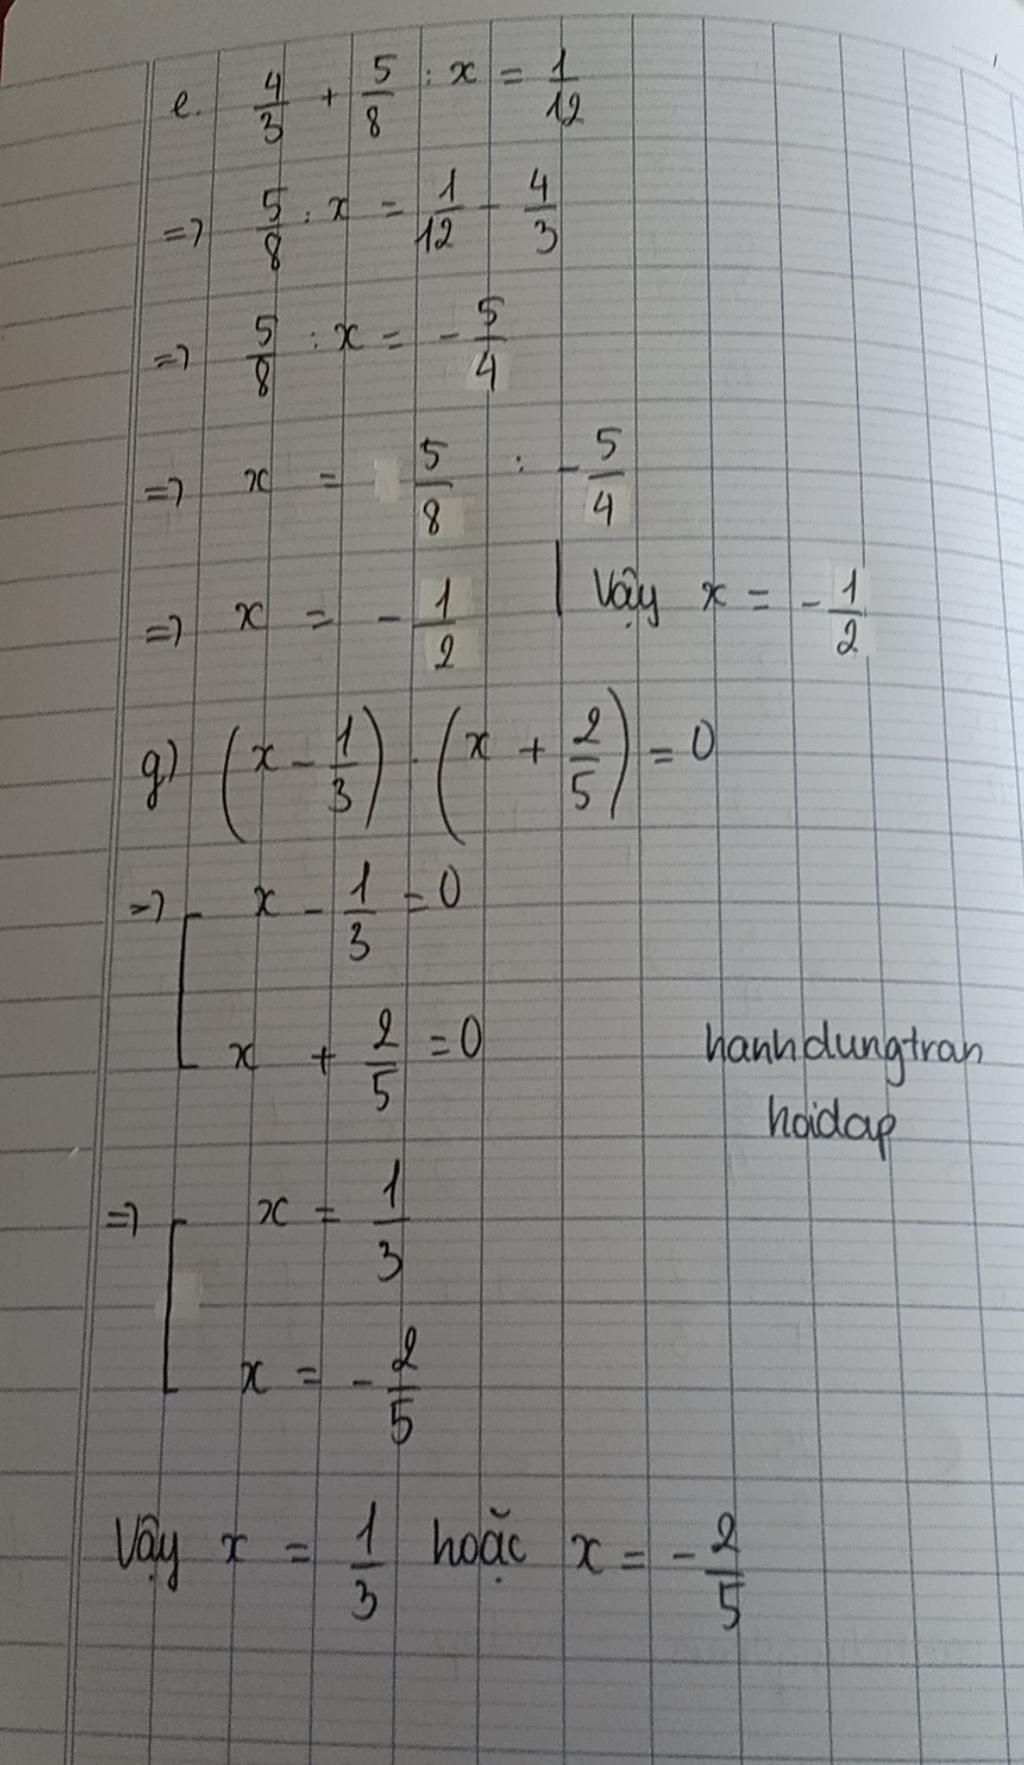 e. 4/3 + 5/8 : x = 1/12
=> 5/8 : x = 1/12 - 4/3
=> 5/8 : x = - 5/4
=> x = 5/8 : - 5/4
=> x = - 1/2 | Vậy x = - 1/2
g) (x - 1/3) . (x + 2/5) = 0
=> [ x - 1/3 = 0
x + 2/5 = 0
hanhdungtran
hoidap
=> [ x = 1/3
x = - 2/5
Vậy x = 1/3 hoặc x = - 2/5